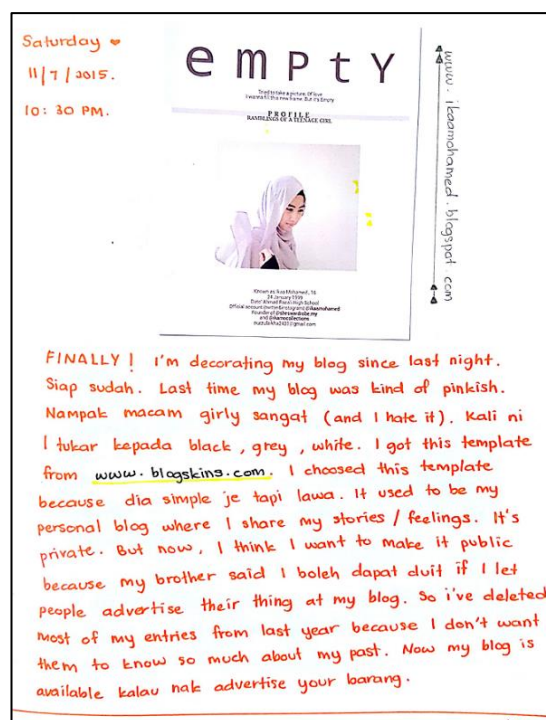 Saturday ♥
11/7/2015.
10:30 PM.
emPtY
Tried to take a picture. Of love
I wanna fill this new frame. But it's Empty
PROFILE
RAMBLINGS OF A TEENAGE GIRL
24 January 1999
www.ikaamohamed.blogspot.com
FINALLY! I'm decorating my blog since last night.
Siap sudah. Last time my blog was kind of pinkish.
Nampak macam girly sangat (and I hate it). Kali ni
I tukar kepada black, grey, white. I got this template
from www.blogskins.com. I choosed this template
because dia simple je tapi lawa. It used to be my
personal blog where I share my stories / feelings. It's
private. But now, I think I want to make it public
because my brother said I boleh dapat duit if I let
people advertise their thing at my blog. So i've deleted
most of my entries from last year because I don't want
them to know so much about my past. Now my blog is
available kalau nak advertise your barang.